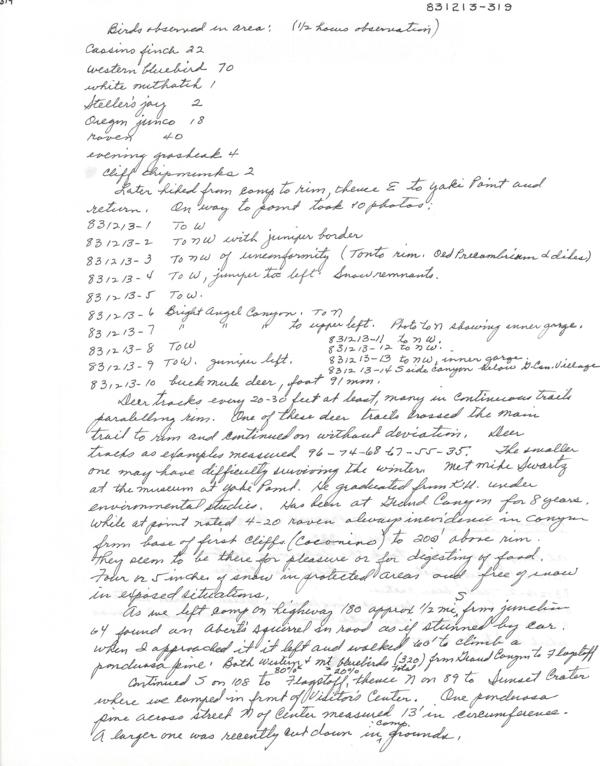 831213-319
Birds observed in area: (1½ hours observation)
Cassins finch 22
western bluebird 70
white nuthatch 1
Steller's jay 2
Oregon junco 18
raven 40
evening grosbeak 4
Cliff chipmunks 2
Later hiked from camp to rim, thence E to Yaki Point and
return. On way to point took 10 photos:
831213-1 To W
831213-2 To NW with juniper border
831213-3 To NW of unconformity (Tonto rim. Old Precambrian & dikes)
831213-4 To W, juniper to left. Snow remnants.
831213-5 To W.
831213-6 Bright Angel Canyon. To N
831213-7 " " " to upper left. Photo to N showing inner gorge.
831213-8 To W
831213-9 To W. juniper left.
831213-10 buck mule deer, foot 91 mm.
831213-11 to NW.
831213-12 to NW.
831213-13 to NW, inner gorge.
831213-14 S side canyon below G. Can. Village
Deer tracks every 20-30 feet at least, many in continuous trails
paralelling rim. One of these deer trails crossed the main
trail to rim and continued on without deviation. Deer
tracks as examples measured 96-74-68-67-55-35. The smaller
one may have difficulty surviving the winter. Met Mike Swartz
at the museum at Yaki Point. He graduated from K.U. under
environmental studies. Has been at Grand Canyon for 8 years.
While at point noted 4-20 raven always in evidence in canyon
from base of first cliffs (Coconino) to 200' above rim.
They seem to be there for pleasure or for digesting of food.
Four or 5 inches of snow in protected areas and free of snow
in exposed situations.
As we left camp on highway 180 approx ½ mi. S from junction
64 found an Abert's squirrel in road as if stunned by car.
When I approached it it left and walked 60' to climb a
ponderosa pine. Both Western & Mt bluebirds (320) from Grand Canyon to Flagstaff
80% 20% Total
Continued S on 108 to Flagstaff, thence N on 89 to Sunset Crater
where we camped in front of Visitor's Center. One ponderosa
pine across street N of Center measured 13' in circumference.
A larger one was recently cut down in camp grounds.